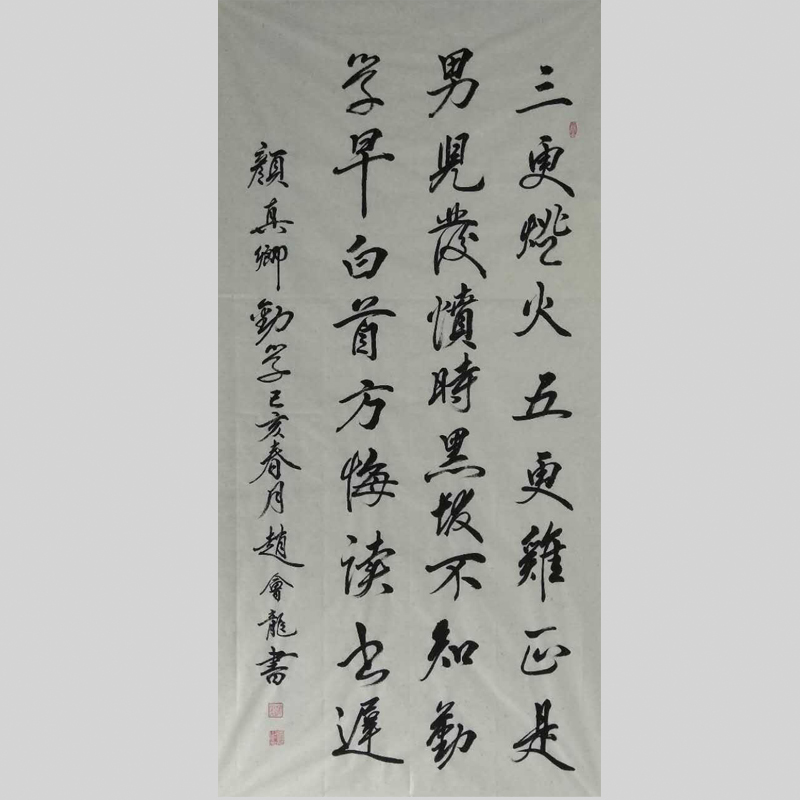 三更燈火五更雞正是
男兒發憤時黑髮不知勤
学早白首方悔读书遲
顏真卿勸学己亥春月趙會龍書